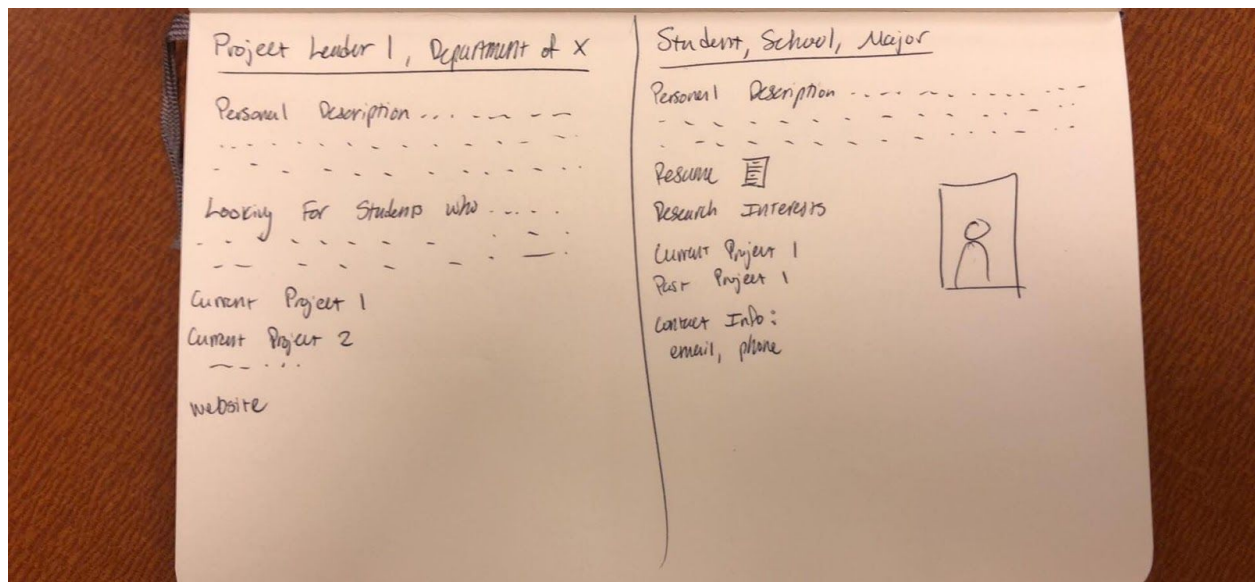 Project Leader 1, Department of X
Personal Description
Looking For Students who
Current Project 1
Current Project 2
website
Student, School, Major
Personal Description
Resume
Research Interests
Current Project 1
Past Project 1
Contact Info:
email, phone